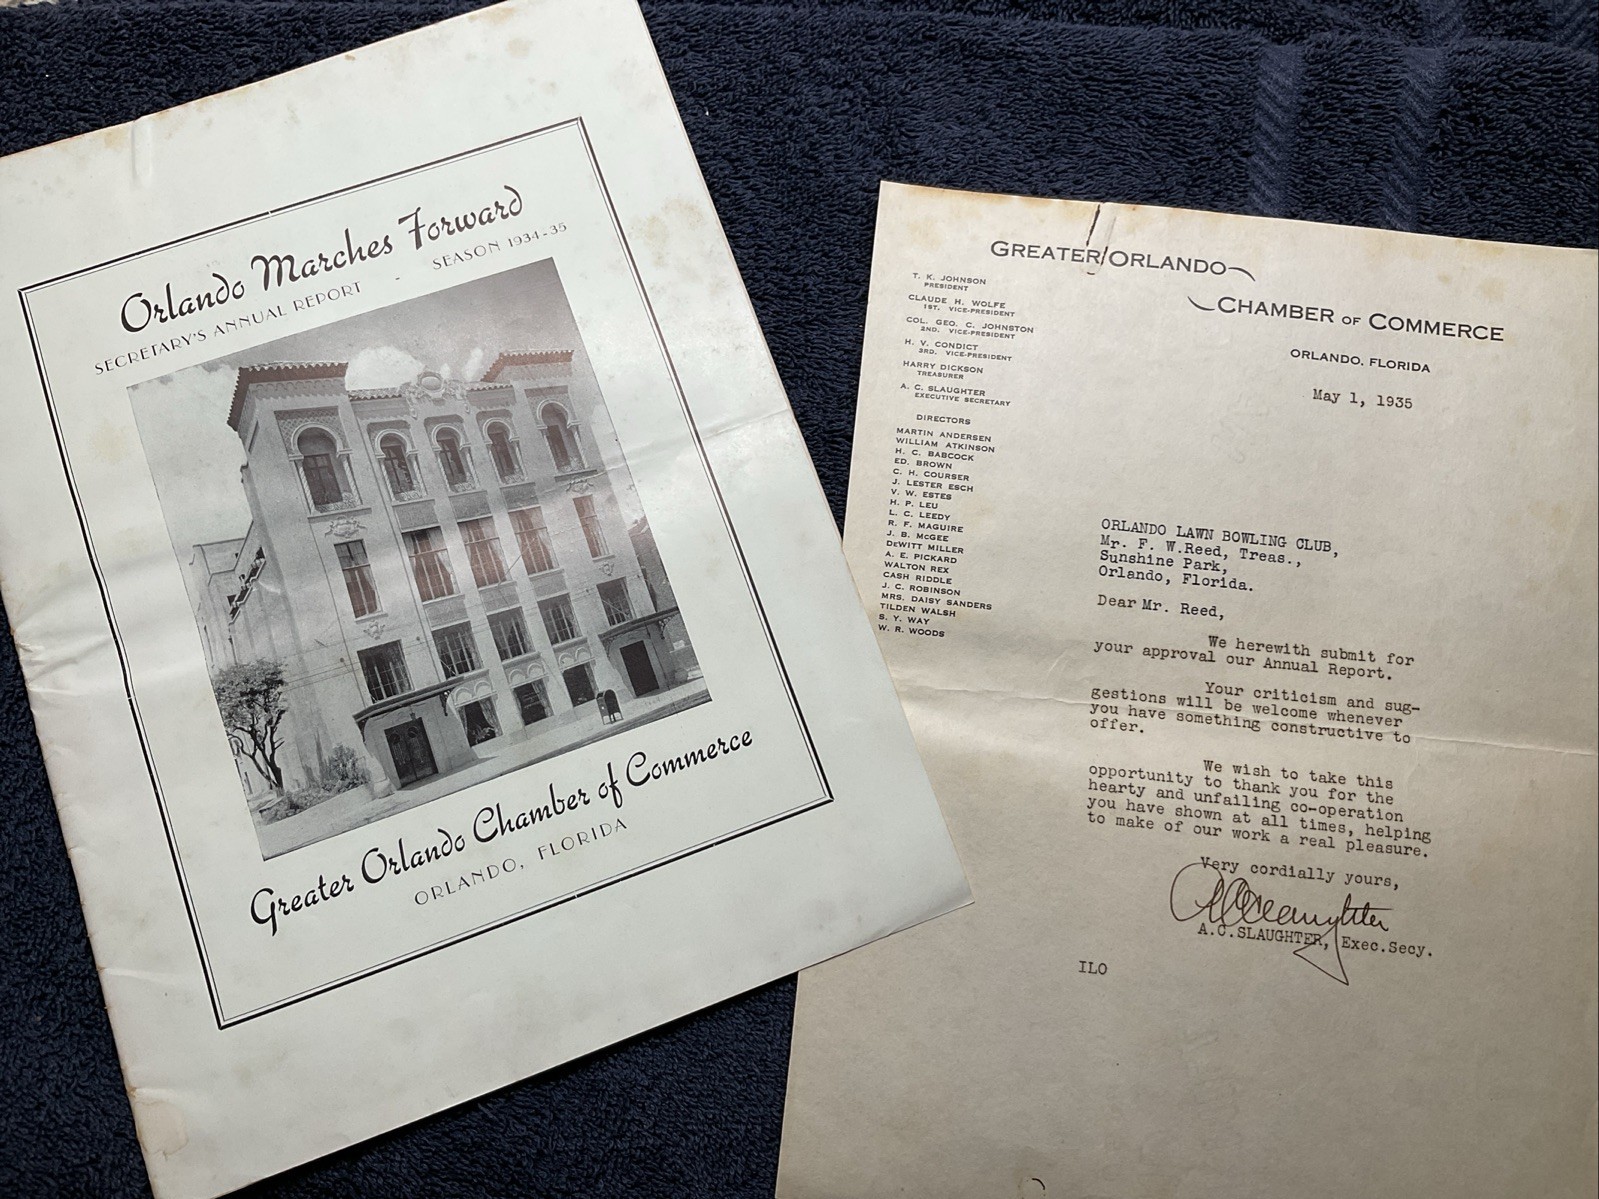 Orlando Marches Forward
SECRETARY'S ANNUAL REPORT - SEASON 1934-35
Greater Orlando Chamber of Commerce
ORLANDO, FLORIDA
GREATER ORLANDO
CHAMBER OF COMMERCE
ORLANDO, FLORIDA
T. K. JOHNSON
PRESIDENT
CLAUDE H. WOLFE
1ST. VICE-PRESIDENT
COL. GEO. C. JOHNSTON
2ND. VICE-PRESIDENT
H. V. CONDICT
3RD. VICE-PRESIDENT
HARRY DICKSON
TREASURER
A. C. SLAUGHTER
EXECUTIVE SECRETARY
DIRECTORS
MARTIN ANDERSEN
WILLIAM ATKINSON
H. C. BABCOCK
ED. BROWN
C. H. COURSER
J. LESTER ESCH
V. W. ESTES
H. P. LEU
L. C. LEEDY
R. F. MAGUIRE
J. B. McGEE
DeWITT MILLER
A. E. PICKARD
WALTON REX
CASH RIDDLE
J. C. ROBINSON
MRS. DAISY SANDERS
TILDEN WALSH
S. Y. WAY
W. R. WOODS
May 1, 1935
ORLANDO LAWN BOWLING CLUB,
Mr. F. W.Reed, Treas.,
Sunshine Park,
Orlando, Florida.
Dear Mr. Reed,
We herewith submit for
your approval our Annual Report.
Your criticism and sug-
gestions will be welcome whenever
you have something constructive to
offer.
We wish to take this
opportunity to thank you for the
hearty and unfailing co-operation
you have shown at all times, helping
to make of our work a real pleasure.
Very cordially yours,
A C Slaughter
A.C.SLAUGHTER, Exec.Secy.
ILO